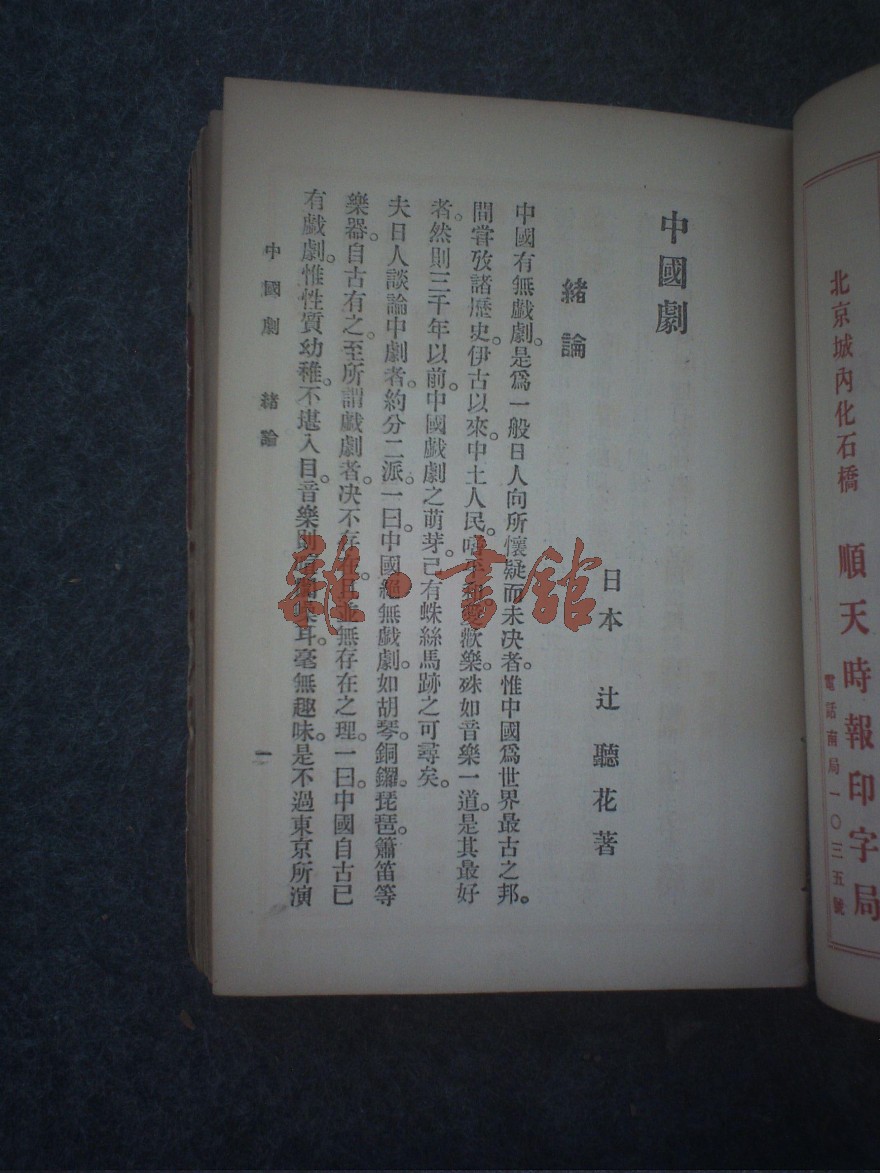 北京城內化石橋
順天時報印字局
電話南局一〇三五號
中國劇
日本 辻聽花著
緒論
中國有無戲劇。是爲一般日人向所懷疑而未决者。惟中國爲世界最古之邦。
間嘗攷諸歷史。伊古以來。中土人民。歡樂。殊如音樂一道。是其最好
者。然則三千年以前。中國戲劇之萌芽。已有蛛絲馬跡之可尋矣。
夫日人談論中劇者。約分二派。一曰。中國絕無戲劇。如胡琴。銅鑼。琵琶。簫笛等
樂器。自古有之。至所謂戲劇者。决不存在。且並無存在之理。一曰。中國自古已
有戲劇。惟性質幼稚。不堪入目。音樂則耳。毫無趣味。是不過東京所演
中國劇 緒論
一
雜·書館